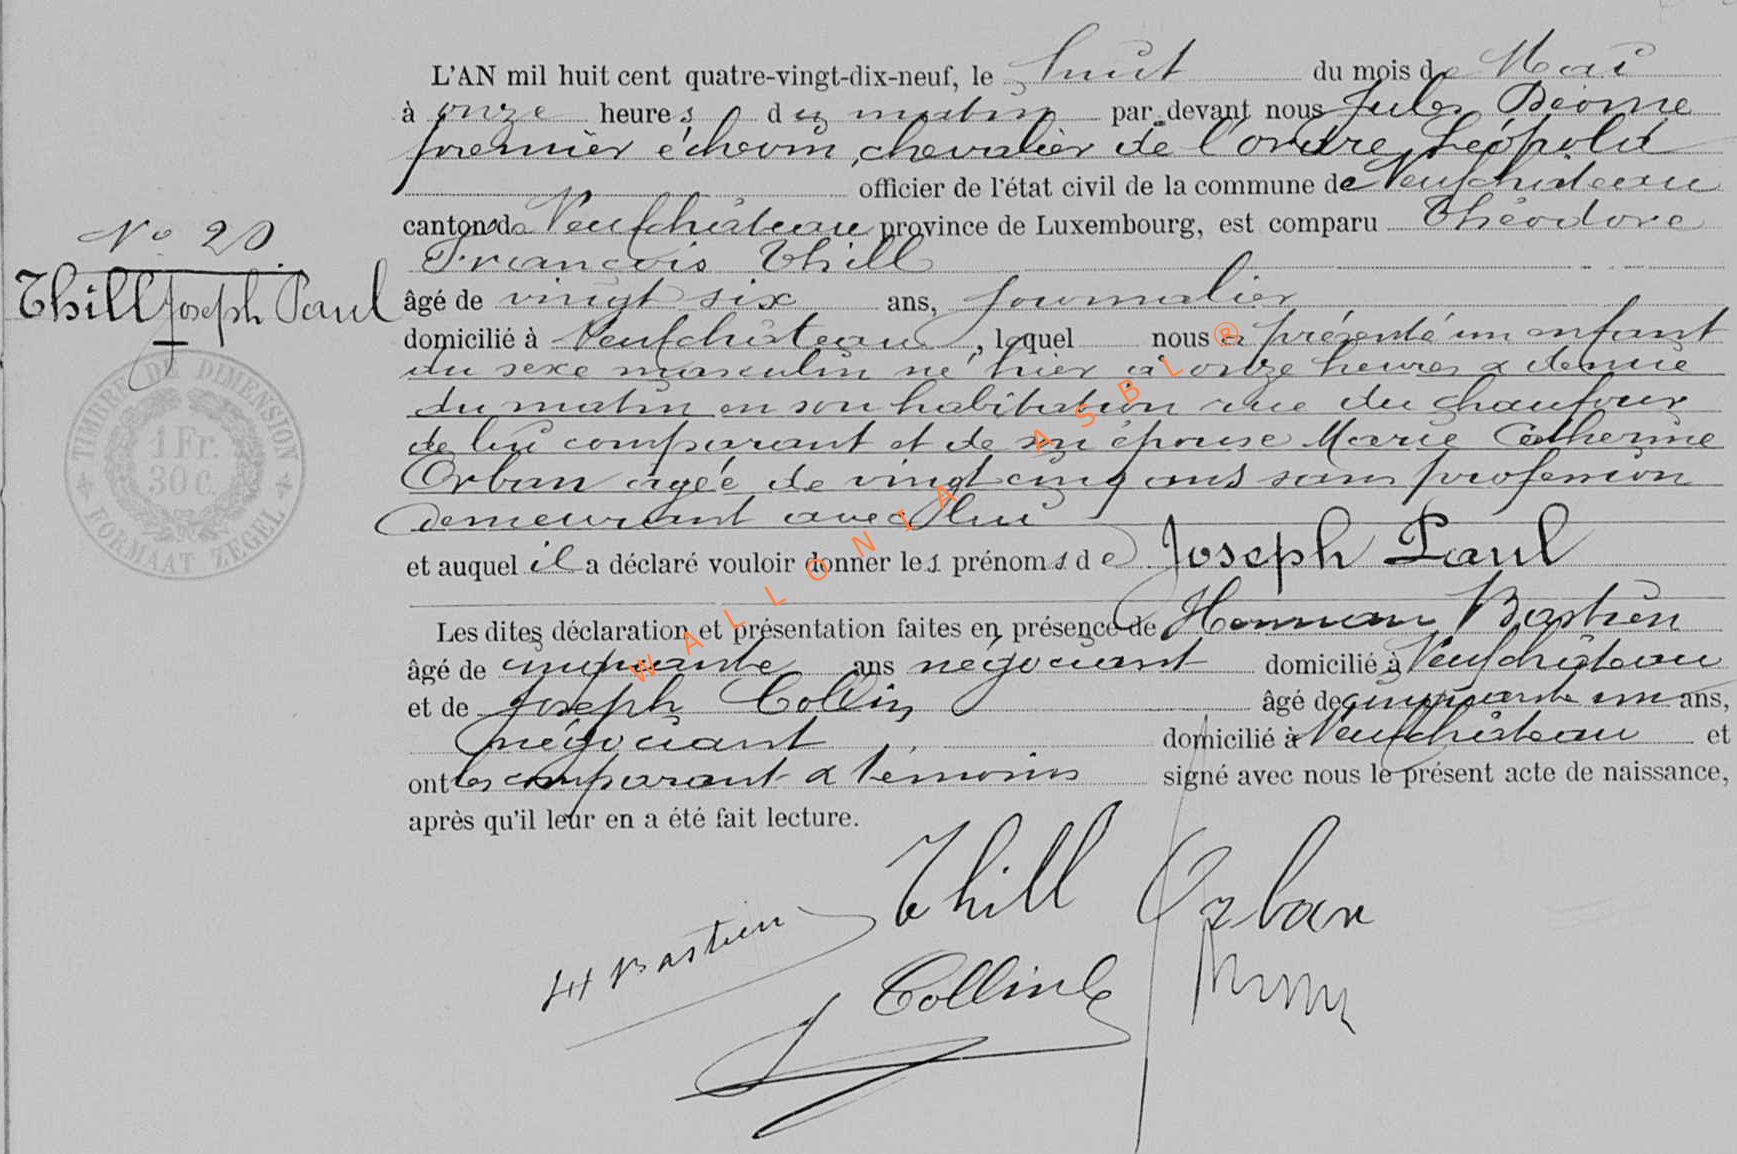 L'AN mil huit cent quatre-vingt-dix-neuf, le huit du mois de Mai
à onze heures du matin par-devant nous Jules
premier échevin, chevalier de l'ordre Léopold
officier de l'état civil de la commune de Neufchâteau
canton de Neufchâteau province de Luxembourg, est comparu Théodore
François Thill
N° 20
Thill Joseph Paul
âgé de vingt six ans, journalier
domicilié à Neufchâteau, lequel nous a présenté un enfant
du sexe masculin né hier à onze heures & demie
du matin en son habitation rue du chaufour
de lui comparant et de sa épouse Marie Catherine
Orban agée de vingt cinq ans sans profession
demeurant avec lui
et auquel il a déclaré vouloir donner les prénoms de Joseph Paul
Les dites déclaration et présentation faites en présence de Herman Bastien
âgé de cinquante ans négociant domicilié à Neufchâteau
et de Joseph Collin âgé de cinquante un ans,
négociant domicilié à Neufchâteau et
ont les comparant & témoins signé avec nous le présent acte de naissance,
après qu'il leur en a été fait lecture.
TIMBRE DE DIMENSION
1 Fr.
30 C.
FORMAAT ZEGEL
WALLONIA ASBL ®
Thill Orban
H Bastien
Collin